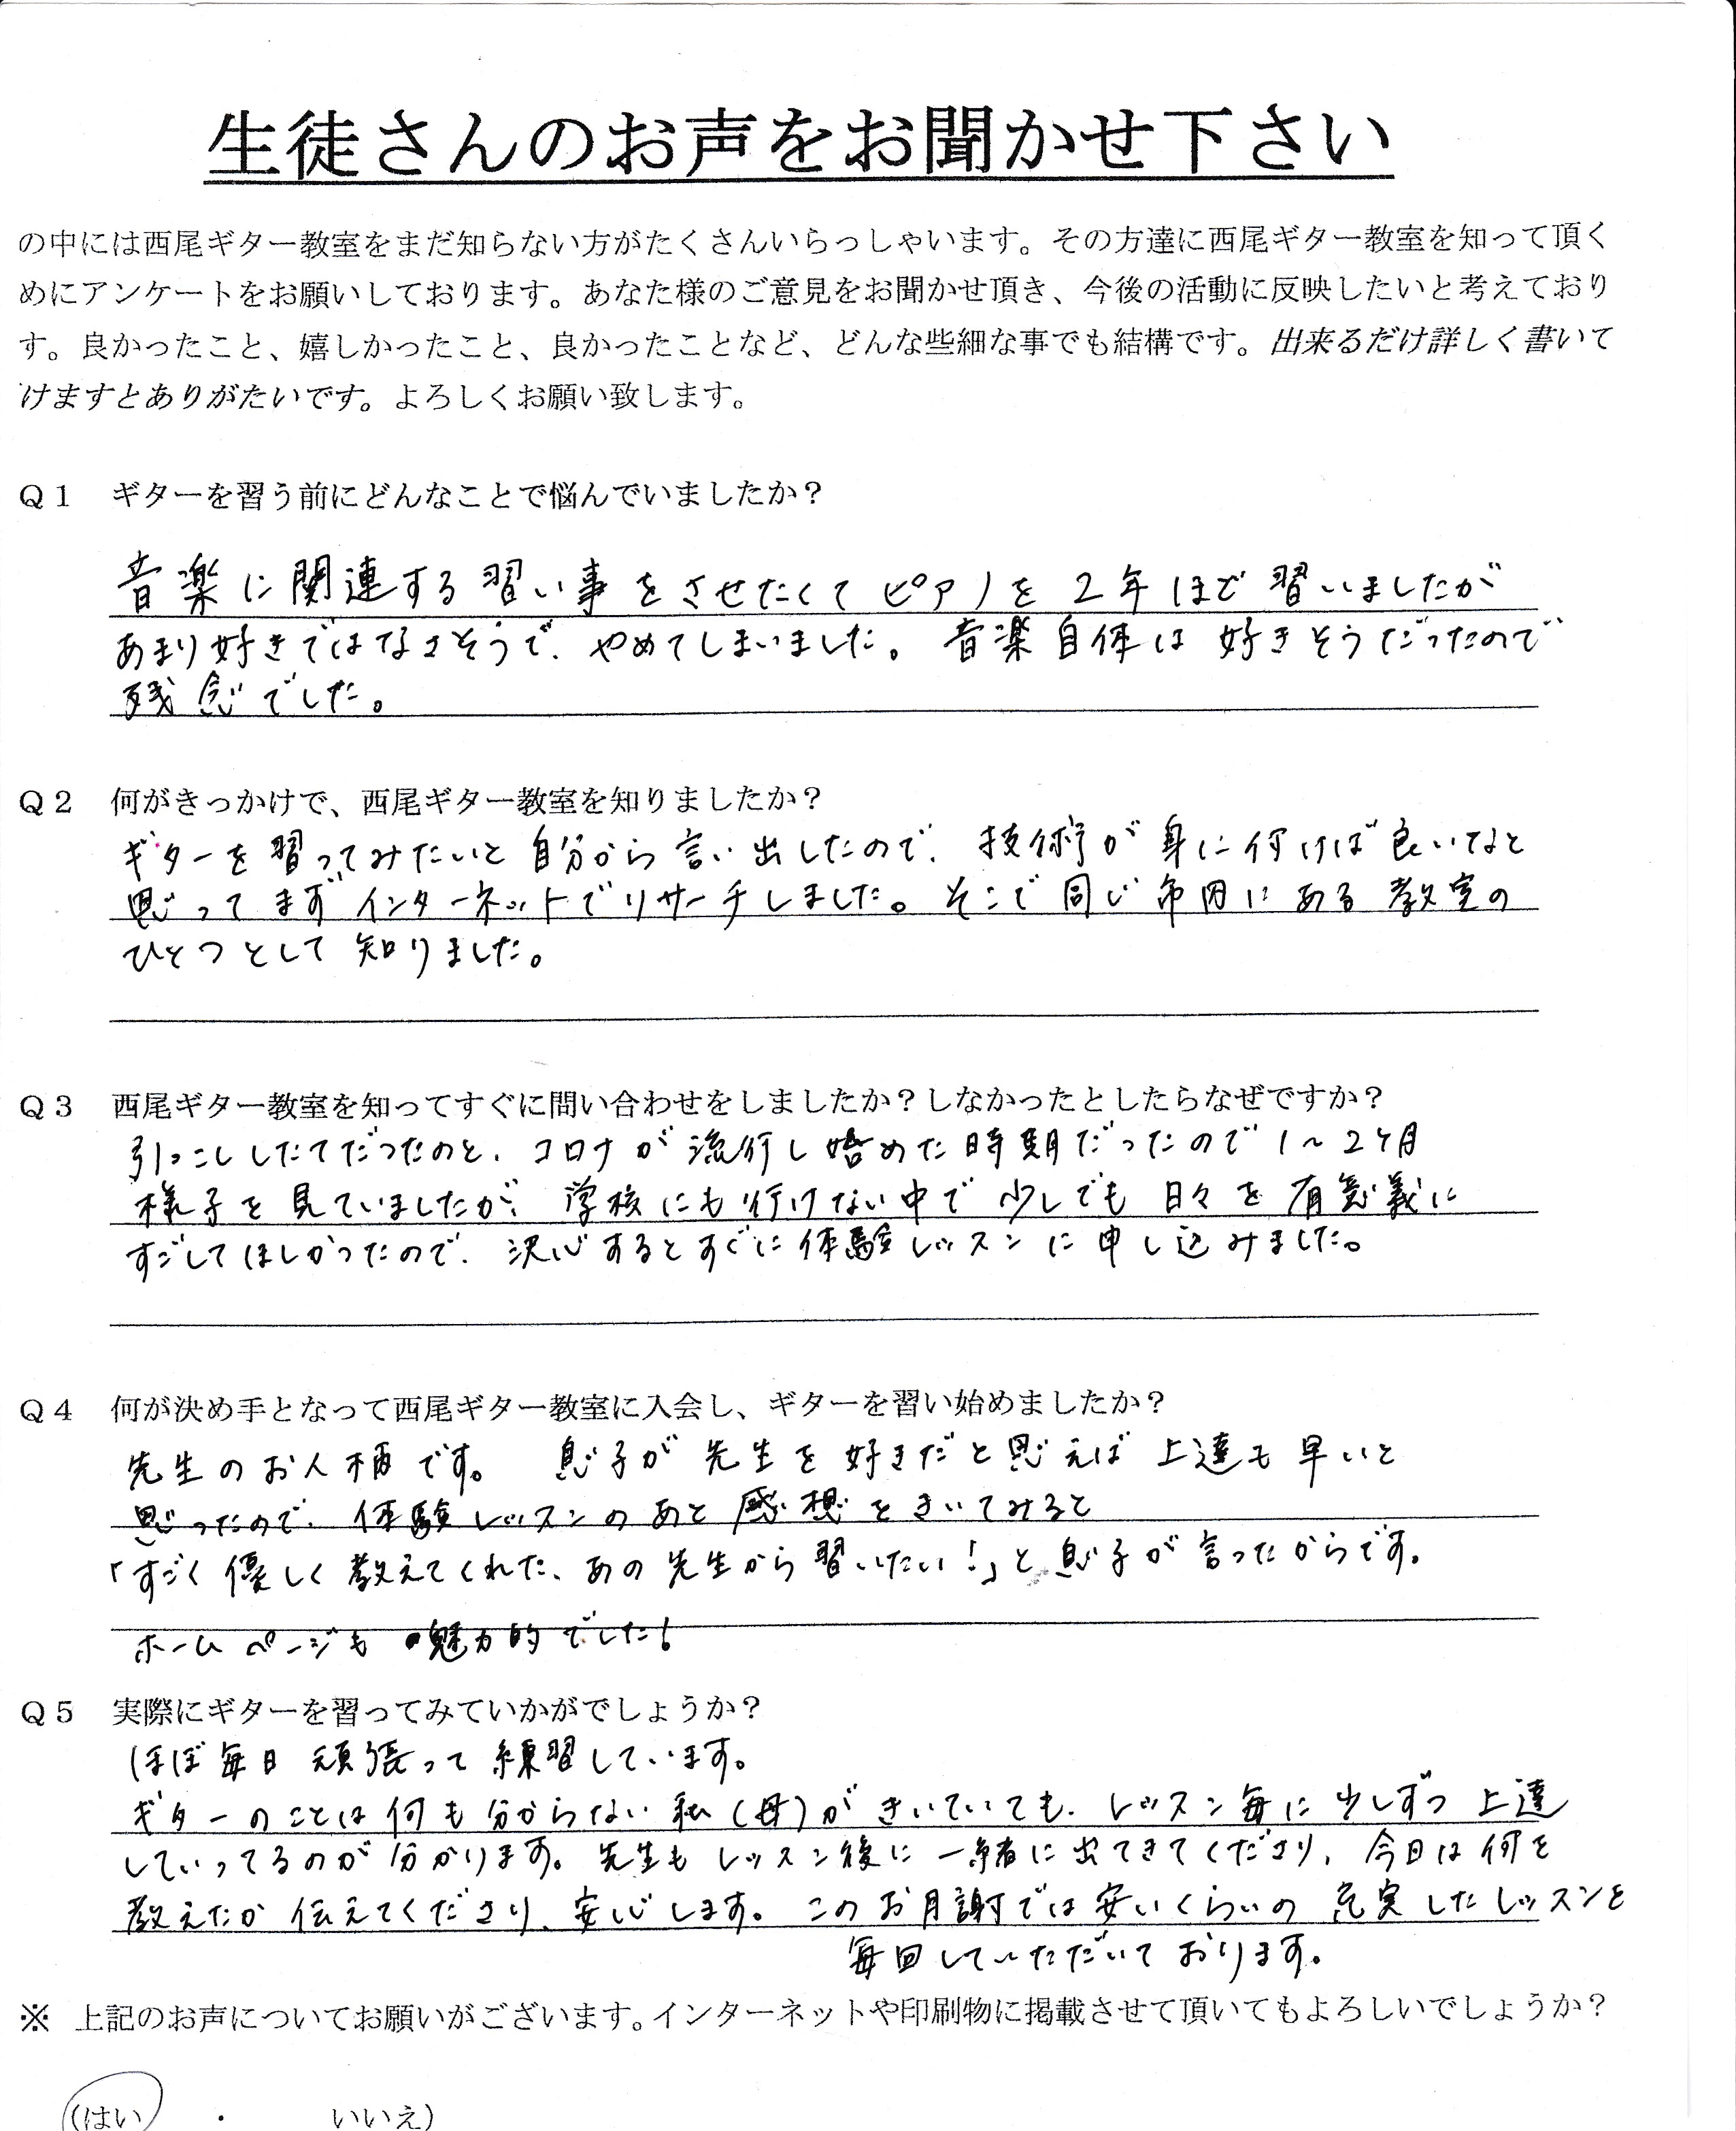 生徒さんのお声をお聞かせ下さい
の中には西尾ギター教室をまだ知らない方がたくさんいらっしゃいます。その方達に西尾ギター教室を知って頂く
めにアンケートをお願いしております。あなた様のご意見をお聞かせ頂き、今後の活動に反映したいと考えており
す。良かったこと、嬉しかったこと、良かったことなど、どんな些細な事でも結構です。出来るだけ詳しく書いて
けますとありがたいです。よろしくお願い致します。
Q1 ギターを習う前にどんなことで悩んでいましたか?
音楽に関連する習い事をさせたくてピアノを2年ほど習いましたが
あまり好きではなさそうで、やめてしまいました。音楽自体は好きそうだったので
残念でした。
Q2 何がきっかけで、西尾ギター教室を知りましたか?
ギターを習ってみたいと自分から言い出したので、技術が身に付けば良いなと
思ってまずインターネットでリサーチしました。そこで同じ市内にある教室の
ひとつとして知りました。
Q3 西尾ギター教室を知ってすぐに問い合わせをしましたか?しなかったとしたらなぜですか?
引っこししたてだったのと、コロナが流行し始めた時期だったので1~2ヶ月
様子を見ていましたが、学校にも行けない中で少しでも日々を有意義に
すごしてほしかったので、決心するとすぐに体験レッスンに申し込みました。
Q4 何が決め手となって西尾ギター教室に入会し、ギターを習い始めましたか?
先生のお人柄です。 息子が先生を好きだと思えば上達も早いと
思ったので、体験レッスンのあと感想をきいてみると
「すごく優しく教えてくれた、あの先生から習いたい!」と息子が言ったからです。
ホームページも魅力的でした!
Q5 実際にギターを習ってみていかがでしょうか?
ほぼ毎日頑張って練習しています。
ギターのことは何も分からない私(母)がきいていても、レッスン毎に少しずつ上達
していってるのが分かります。先生もレッスン後に一緒に出てきてくださり、今日は何を
教えたか伝えてくださり、安心します。このお月謝では安いくらいの充実したレッスンを
毎回していただいております。
※ 上記のお声についてお願いがございます。インターネットや印刷物に掲載させて頂いてもよろしいでしょうか?
(はい ・ いいえ)